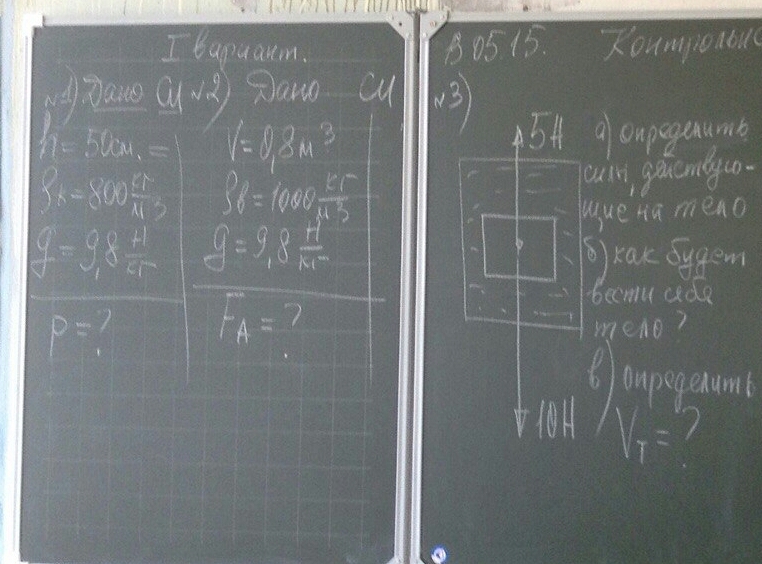 I вариант.
№1) Дано СИ
h = 50см. =
ρк = 800 кг/м³
g = 9,8 Н/кг
p = ?
№2) Дано СИ
V = 0,8 м³
ρв = 1000 кг/м³
g = 9,8 Н/кг
FА = ?
05 15. Контрольн
№3)
5Н
10Н
а) определить
силы, действую-
щие на тело
б) как будет
вести себя
тело?
в) определить
Vт = ?